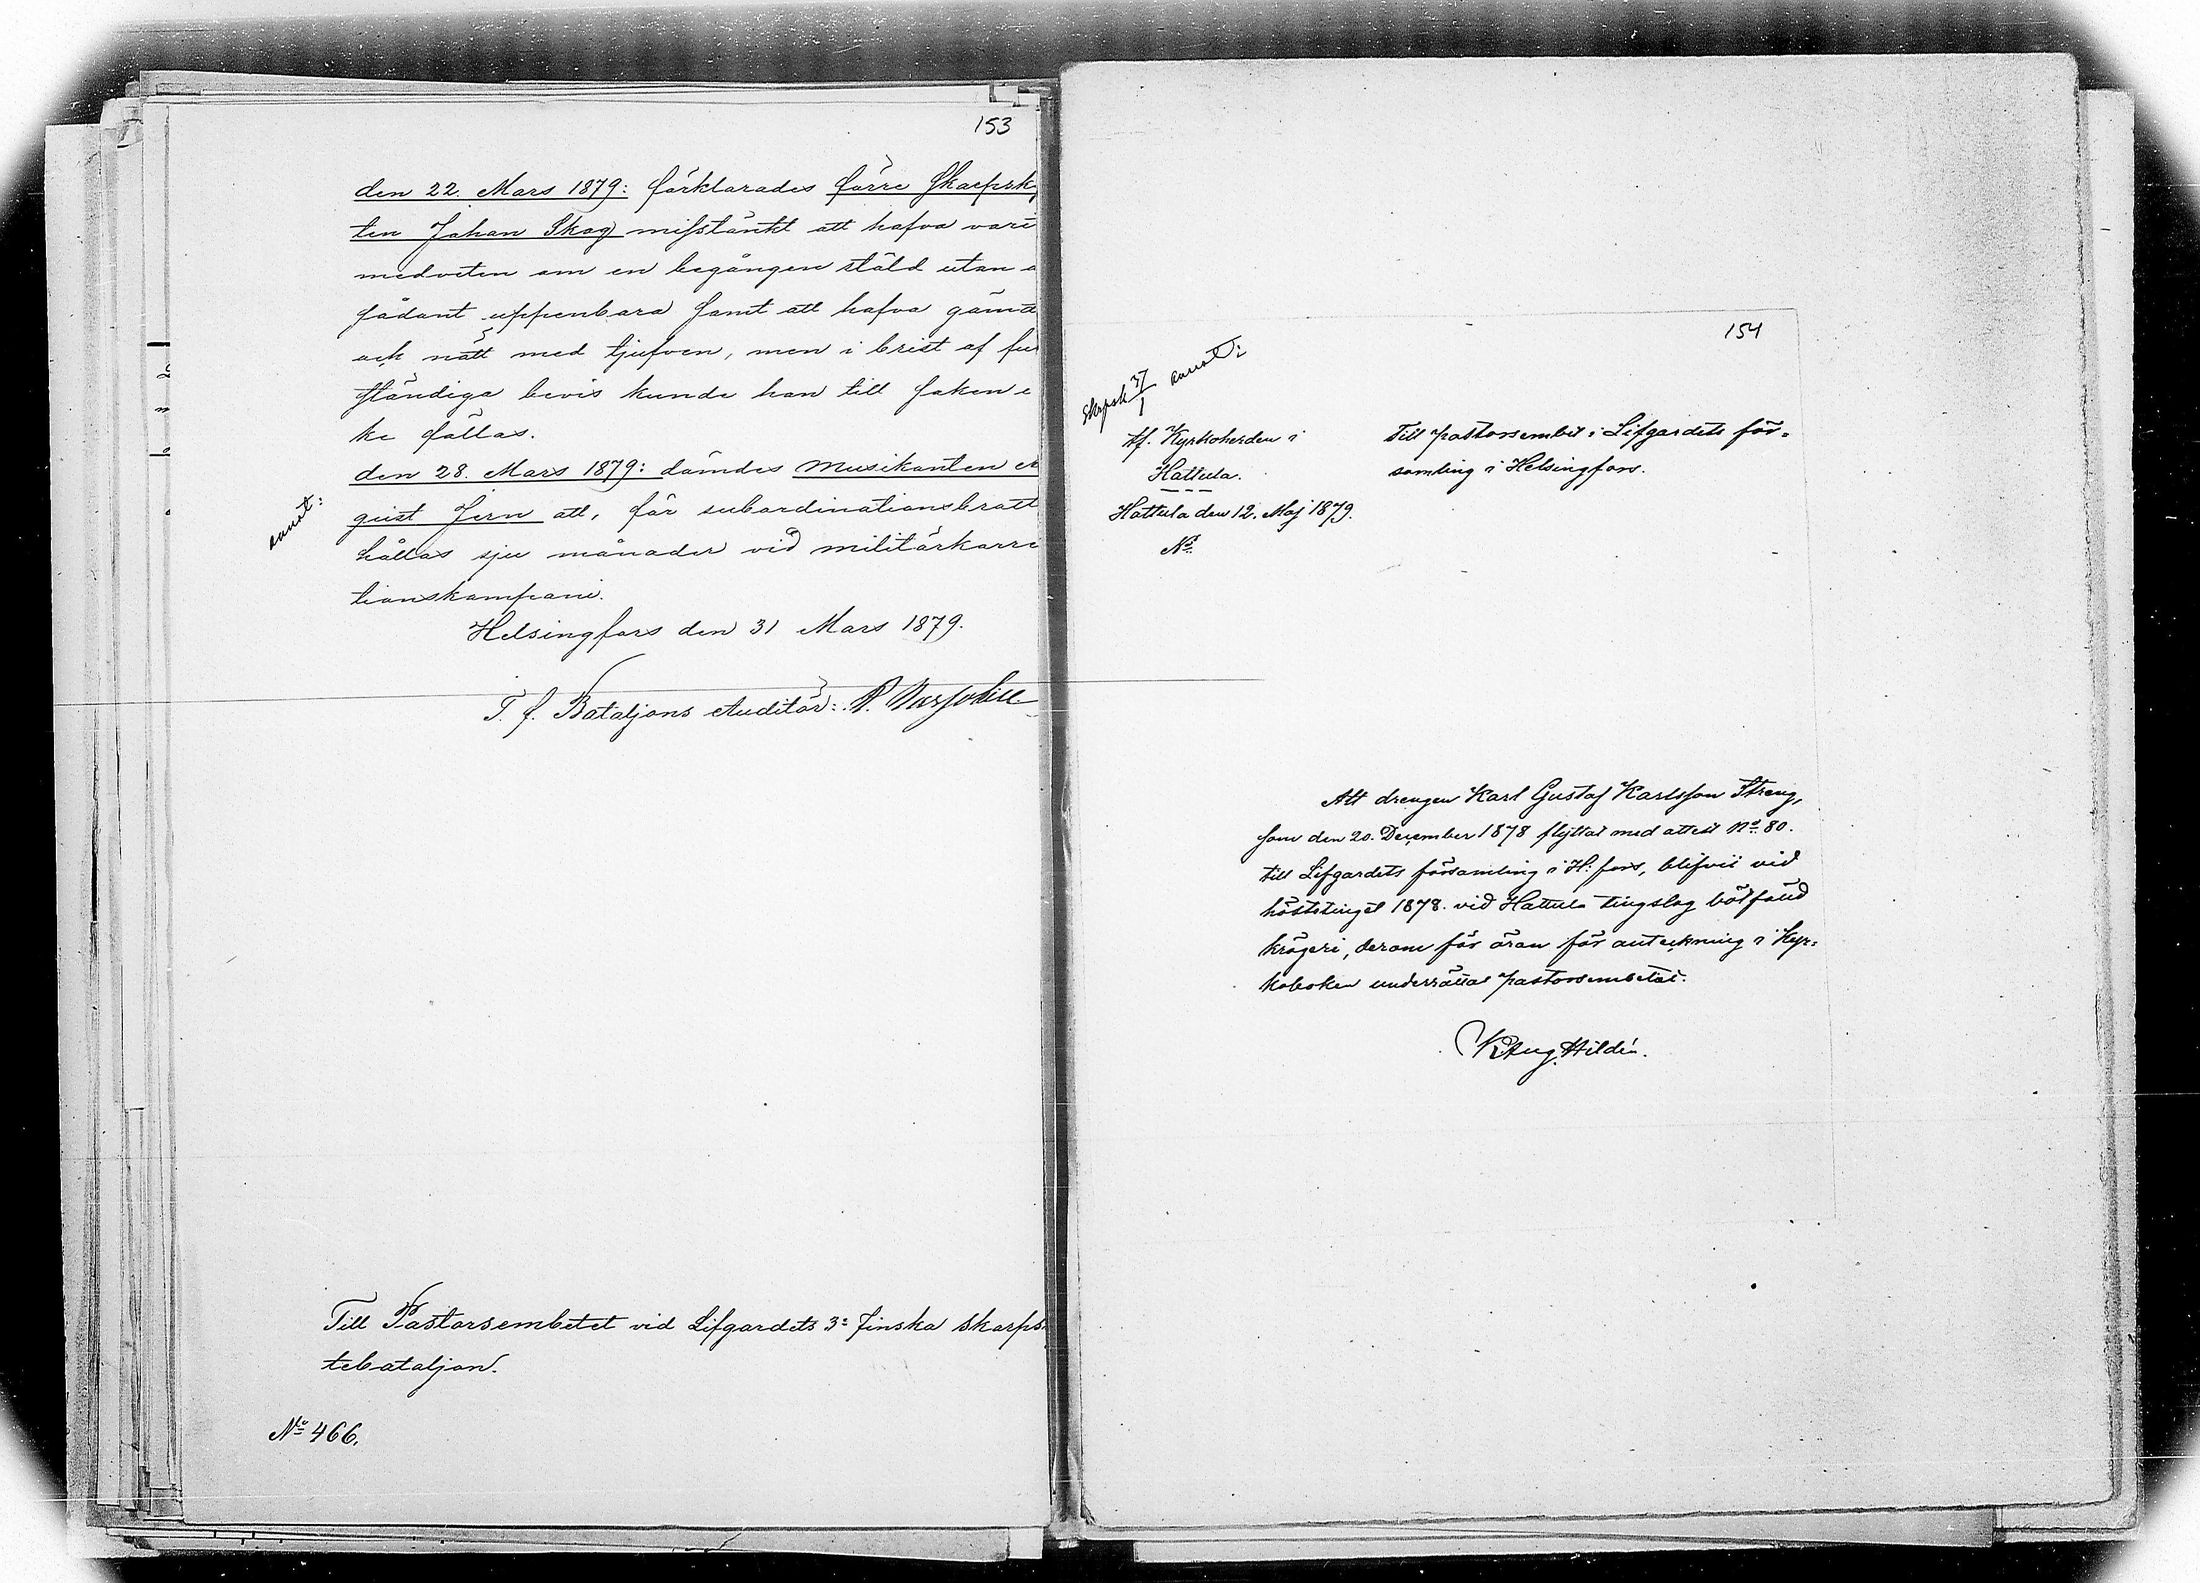 153
den 22. Mars 1879: förklarades förre Skarpsk
ten Johan Skog misstänkt att hafva vari
medveten om en begången stöld utan a
sådant uppenbara samt att hafva gömt
och nött med tjufven, men i brist af ful
ständiga bevis kunde han till saken i
ke fällas.
den 28. Mars 1879: dömdes Musikanten
quist Jern att, för subordinationsbrott
hållas sju månader vid militärkorre
tionskompani.
anot:
Helsingfors den 31 Mars 1879.
T. f. Bataljons Auditör:
Till Pastorsembetet vid Lifgardets 3e Finska Skarps
tebataljon.
No 466.
154
Skrpsk 37/1 anot:
Tf. Kyrkoherden i
Hattula.
Hattula den 12. Maj 1879.
No
Till pastorsembet i Lifgardets för-
samling i Helsingfors.
Att drengen Karl Gustaf Karlsson Streng,
som den 20. December 1878 flyttat med attest No 80.
till Lifgardets församling i H:fors, blifvit vid
höststinget 1878. vid Hattula tingslag bötfäld
krögeri, derom får äran för anteckning i Kyr-
koboken underrätta pastorsembetet.
K Aug. Hildén.